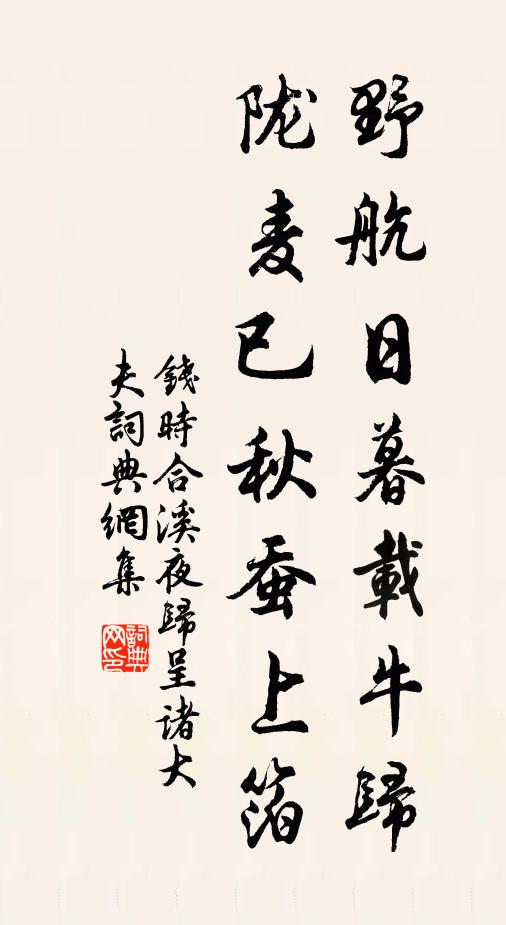 野航日暮載牛歸
陇麦已秋蚕上箔
錢時合溪夜歸呈诸大
夫詞典網集
詞典网印